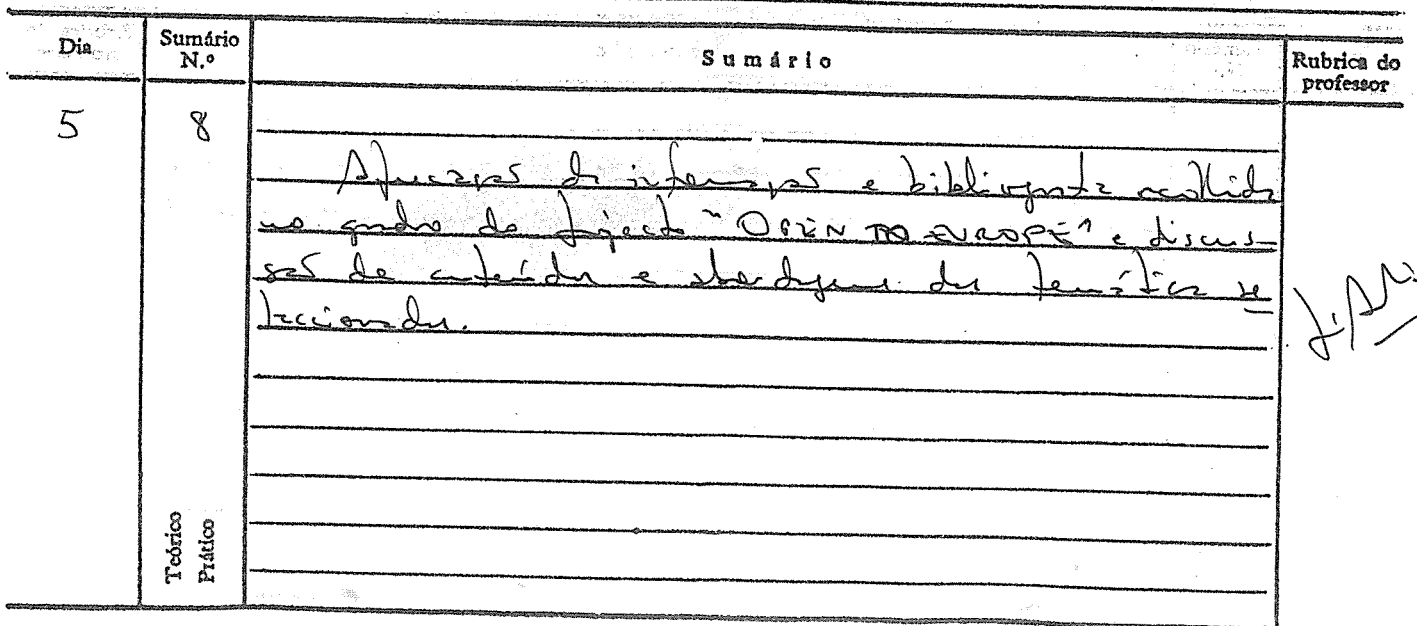 Dia
Sumário
N.º
Sumário
Rubrica do
professor
5
8
de informação e bibliografia recolhida
no quadro do projecto "OPEN TO EUROPE" e discus-
são de conteúdos e abordagens das temáticas se
leccionadas.
Teórico
Prático